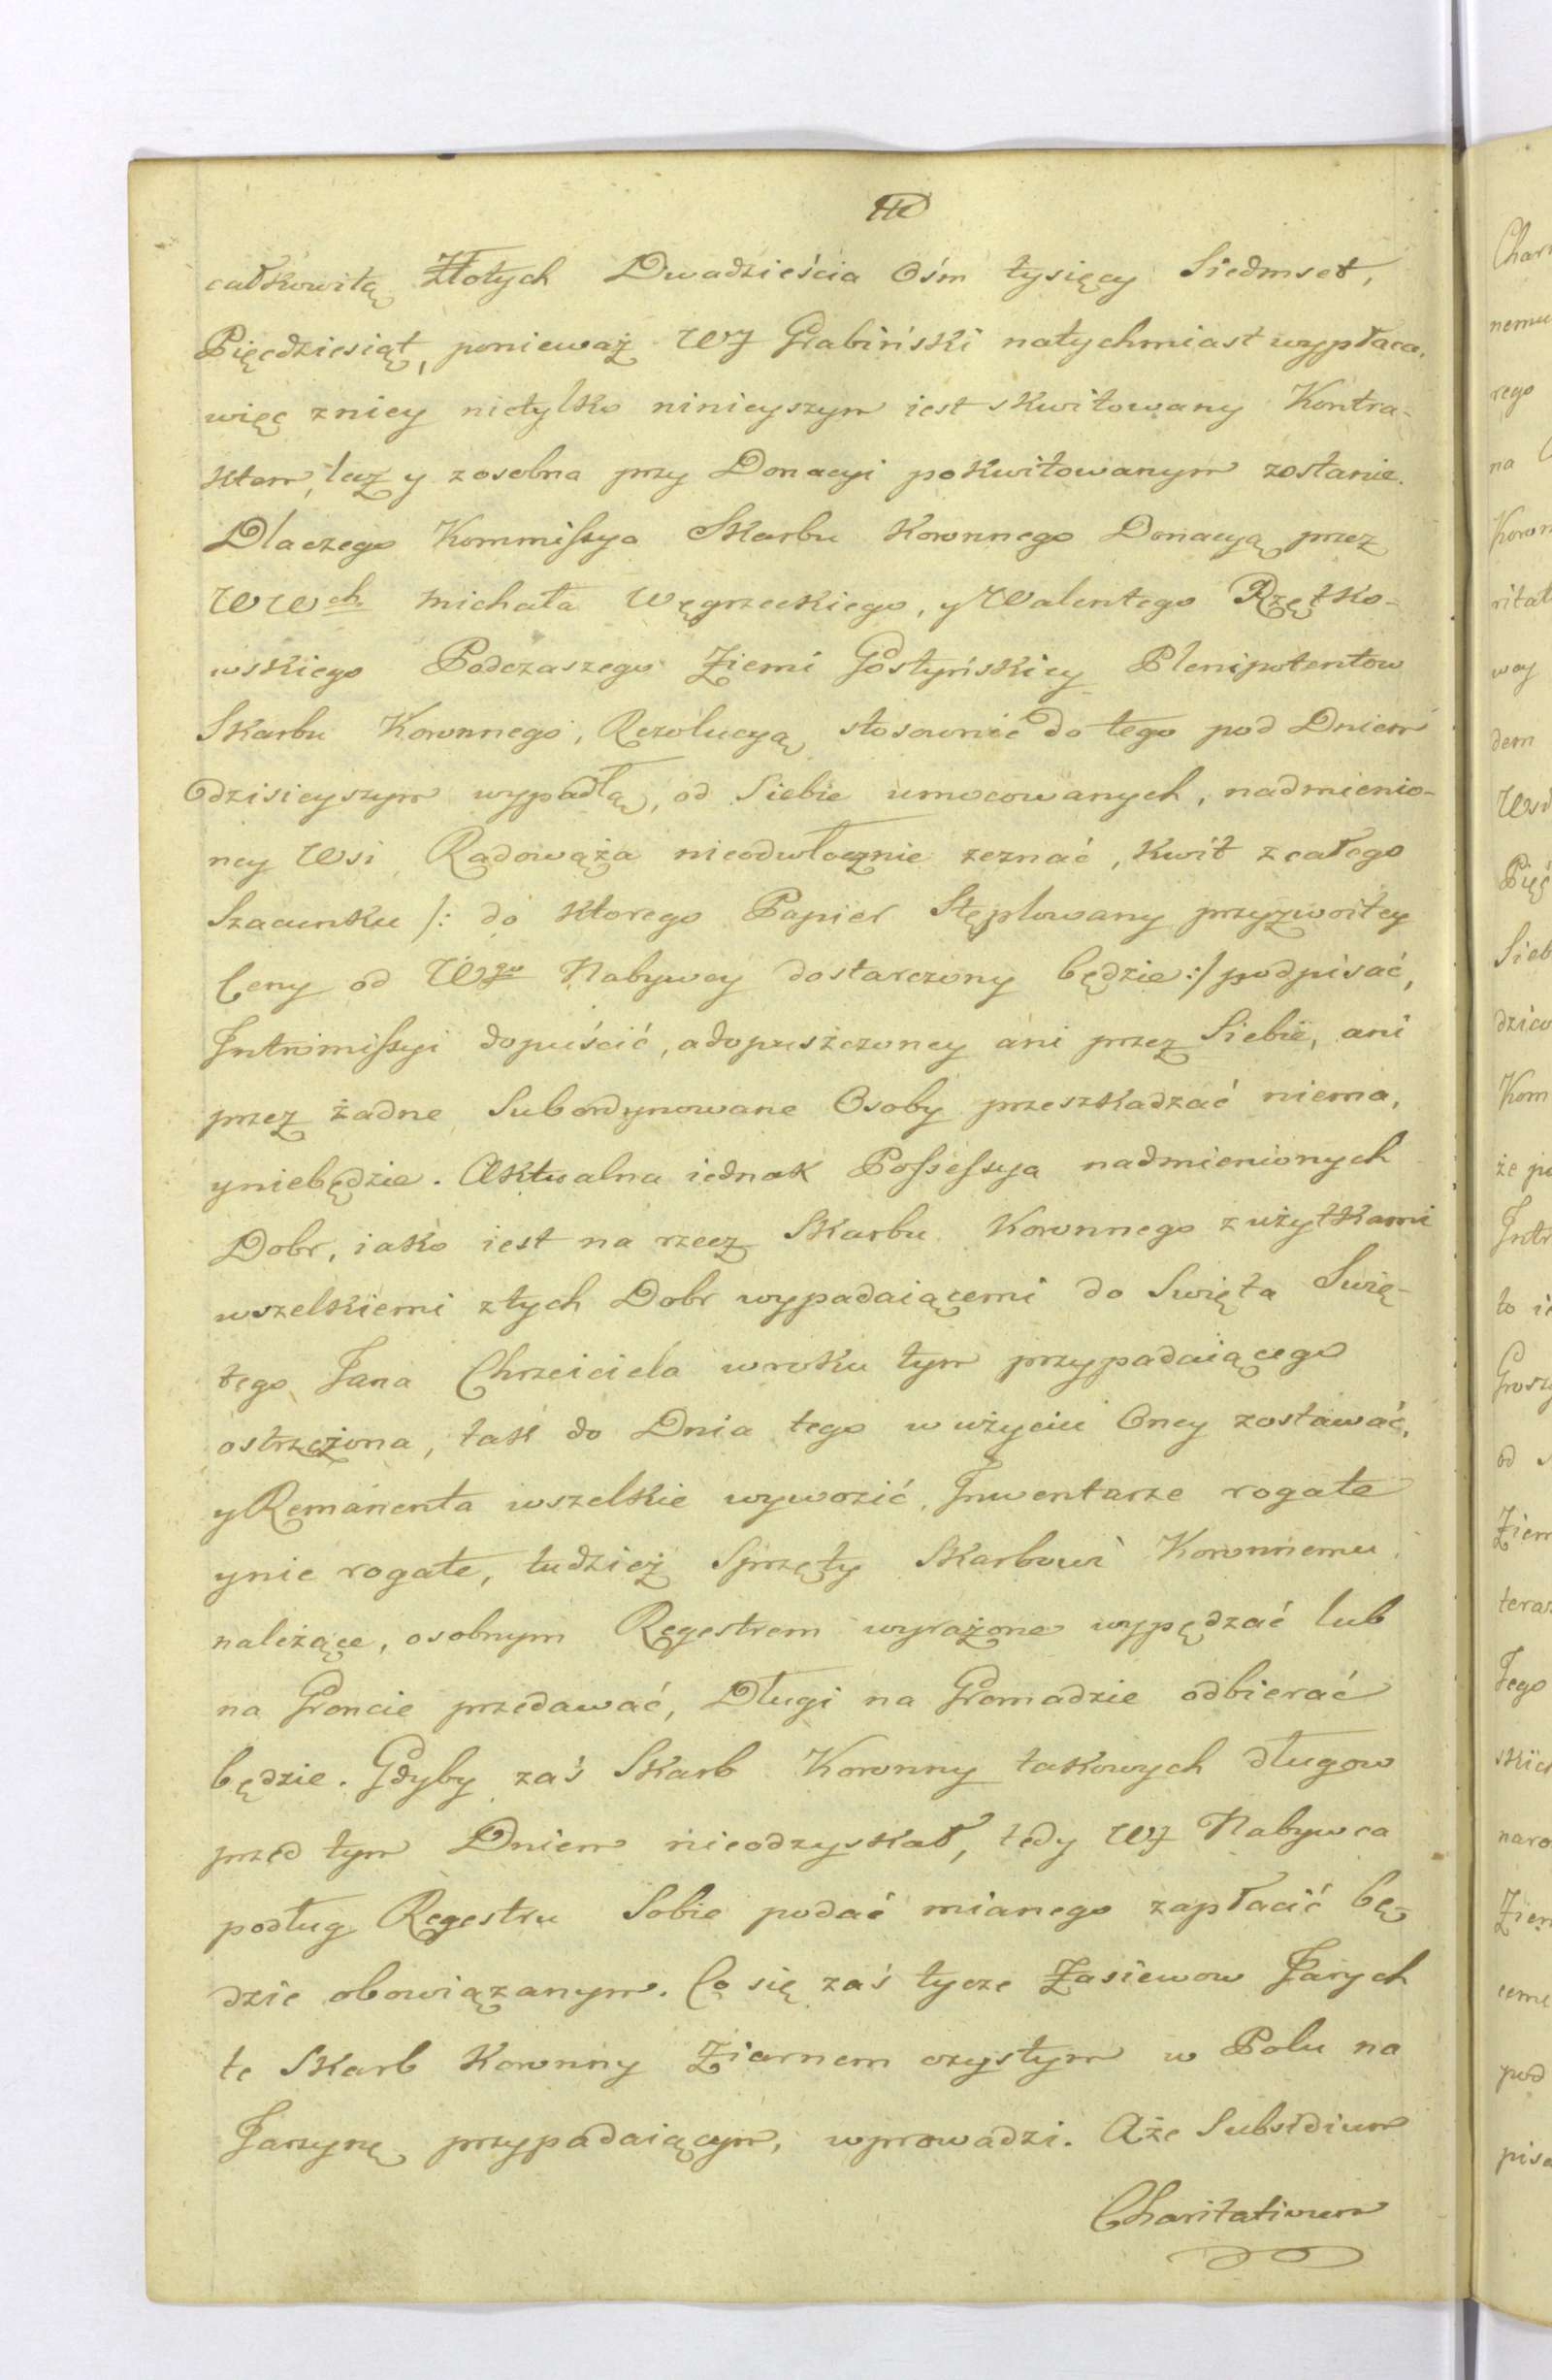 całkowitą Złotych Dwadzieścia Ośm tysięcy Siedmset,
Pięcdziesiąt, ponieważ WJ Grabiński natychmiast wypłaca,
więc zniey nietylko ninieyszym iest skwitowany Kontra-
ktem, lecz y zosobna przy Donacyi pokwitowanym zostanie.
Dlaczego Kommissya Skarbu Koronnego Donacyą przez
WWch Michała Węgrzeckiego, y Walentego Rzętko-
wskiego Podczaszego Ziemi Gostyńskiey Plenipotentow
Skarbu Koronnego, Rezolucyą stosownie do tego pod Dniem
dzisieyszym wypadłą, od Siebie umocowanych, nadmienio-
ney Wsi Radowąża nieodwłocznie zeznać, Kwit z całego
Szacunku /: do ktorego Papier Stęplowany przyzwoitey
Ceny od Wgo Nabywcy dostarczony będzie :/ podpisać,
Intromissyi dopuścić, a dopuszczoney ani przez Siebie, ani
przez żadne Subordynowane Osoby przeszkadzać niema,
y niebędzie. Aktualna iednak Possessya nadmienionych
Dobr, iako iest na rzecz Skarbu Koronnego z użytkami
wszelkiemi z tych Dobr wypadaiącemi do Swięta Swię-
tego Jana Chrzciciela w roku tym przypadaiącego
ostrzeżona, tak do Dnia tego w użyciu Oney zostawać,
y Remanenta wszelkie wywozić, Inwentarze rogate
y nie rogate, tudzież Sprzęty Skarbowi Koronnemu
należące, osobnym Regestrem wyrażone wypędzać lub
na Groncie przedawać, Długi na Gromadzie odbierać
będzie. Gdyby zaś Skarb Koronny takowych długow
przed tym Dniem nieodzyskał, tedy WJ Nabywca
podług Regestru Sobie podać mianego zapłacić bę-
dzie obowiązanym. Co się zaś tycze Zasiewow Jarych
te Skarb Koronny Ziarnem czystym w Polu na
Jarzynę przypadaiącym, wprowadzi. A że Subsidium
Charitativum